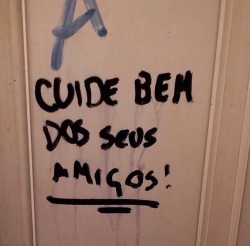 A
CUIDE BEM
DOS SEUS
AMIGOS!